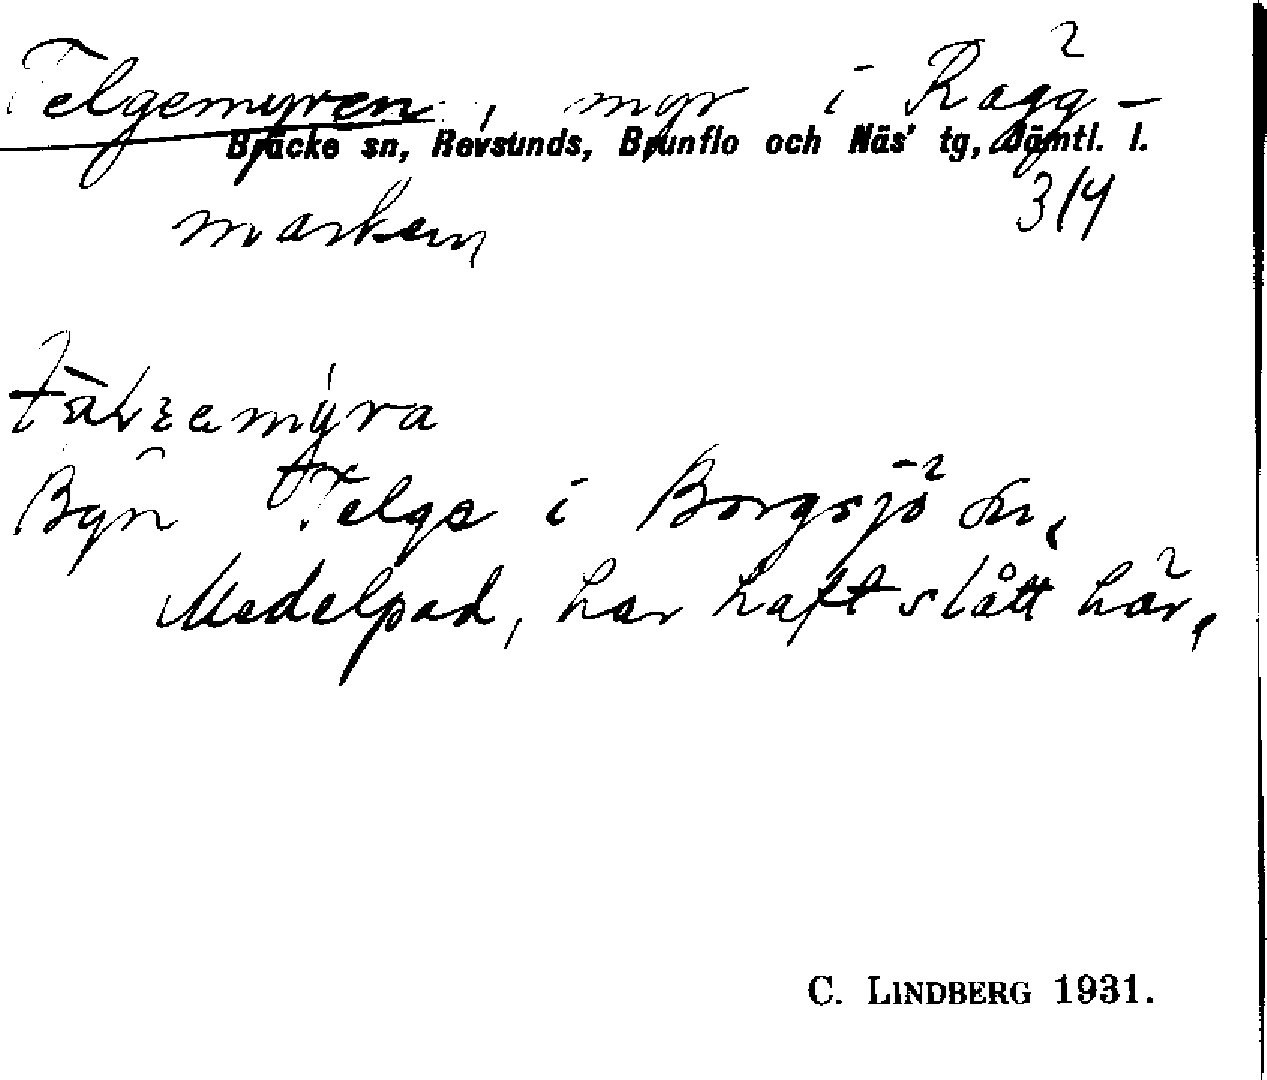 Telgemyren, myr i Rägg-
Bräcke sn, Revsunds, Brunflo och Näs' tg, Jämtl. l.
marken 3/4
Byn Telge i Borgsjö sn,
Medelpad, har haft slått här.
C. LINDBERG 1931.